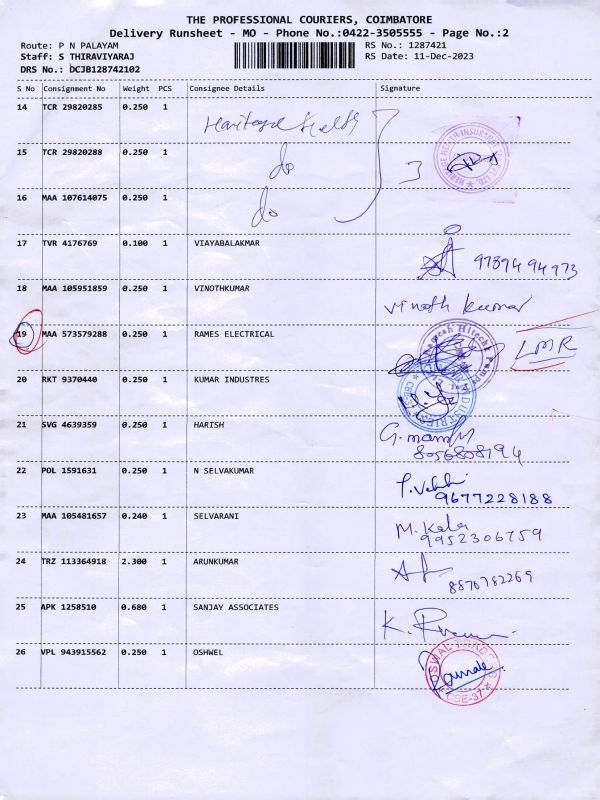 THE PROFESSIONAL COURIERS, COIMBATORE
Delivery Runsheet - MO - Phone No.:0422-3505555 - Page No.:2
Route: P N PALAYAM RS No.: 1287421
Staff: S THIRAVIYARAJ RS Date: 11-Dec-2023
DRS No.: DCJB128742102
S No Consignment No Weight PCS Consignee Details Signature
14 TCR 29820285 0.250 1
15 TCR 29820288 0.250 1 do 3
16 MAA 107614075 0.250 1 do
17 TVR 4176769 0.100 1 VIAYABALAKMAR 97894 94973
18 MAA 105951859 0.250 1 VINOTHKUMAR vinoth kumar
19 MAA 573579288 0.250 1 RAMES ELECTRICAL LMR
20 RKT 9370440 0.250 1 KUMAR INDUSTRES
21 SVG 4639359 0.250 1 HARISH
8056808194
22 POL 1591631 0.250 1 N SELVAKUMAR
9677228188
23 MAA 105481657 0.240 1 SELVARANI M. Kala
9952306759
24 TRZ 113364918 2.300 1 ARUNKUMAR
8870782269
25 APK 1258510 0.680 1 SANJAY ASSOCIATES
26 VPL 943915562 0.250 1 OSHWEL
CBE-37